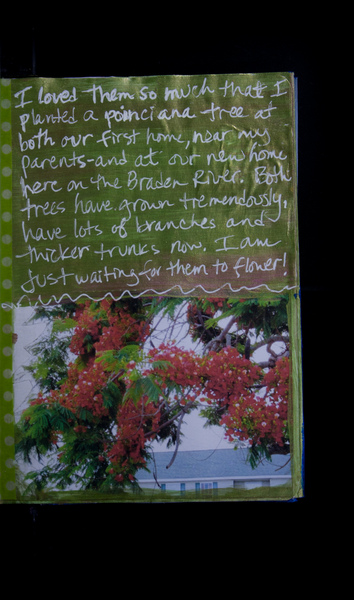 I loved them so much that I
planted a poinciana tree at
both our first home, near my
parents-and at our new home
here on the Braden River. Both
trees have grown tremendously,
have lots of branches and
thicker trunks now. I am
just waiting for them to flower!